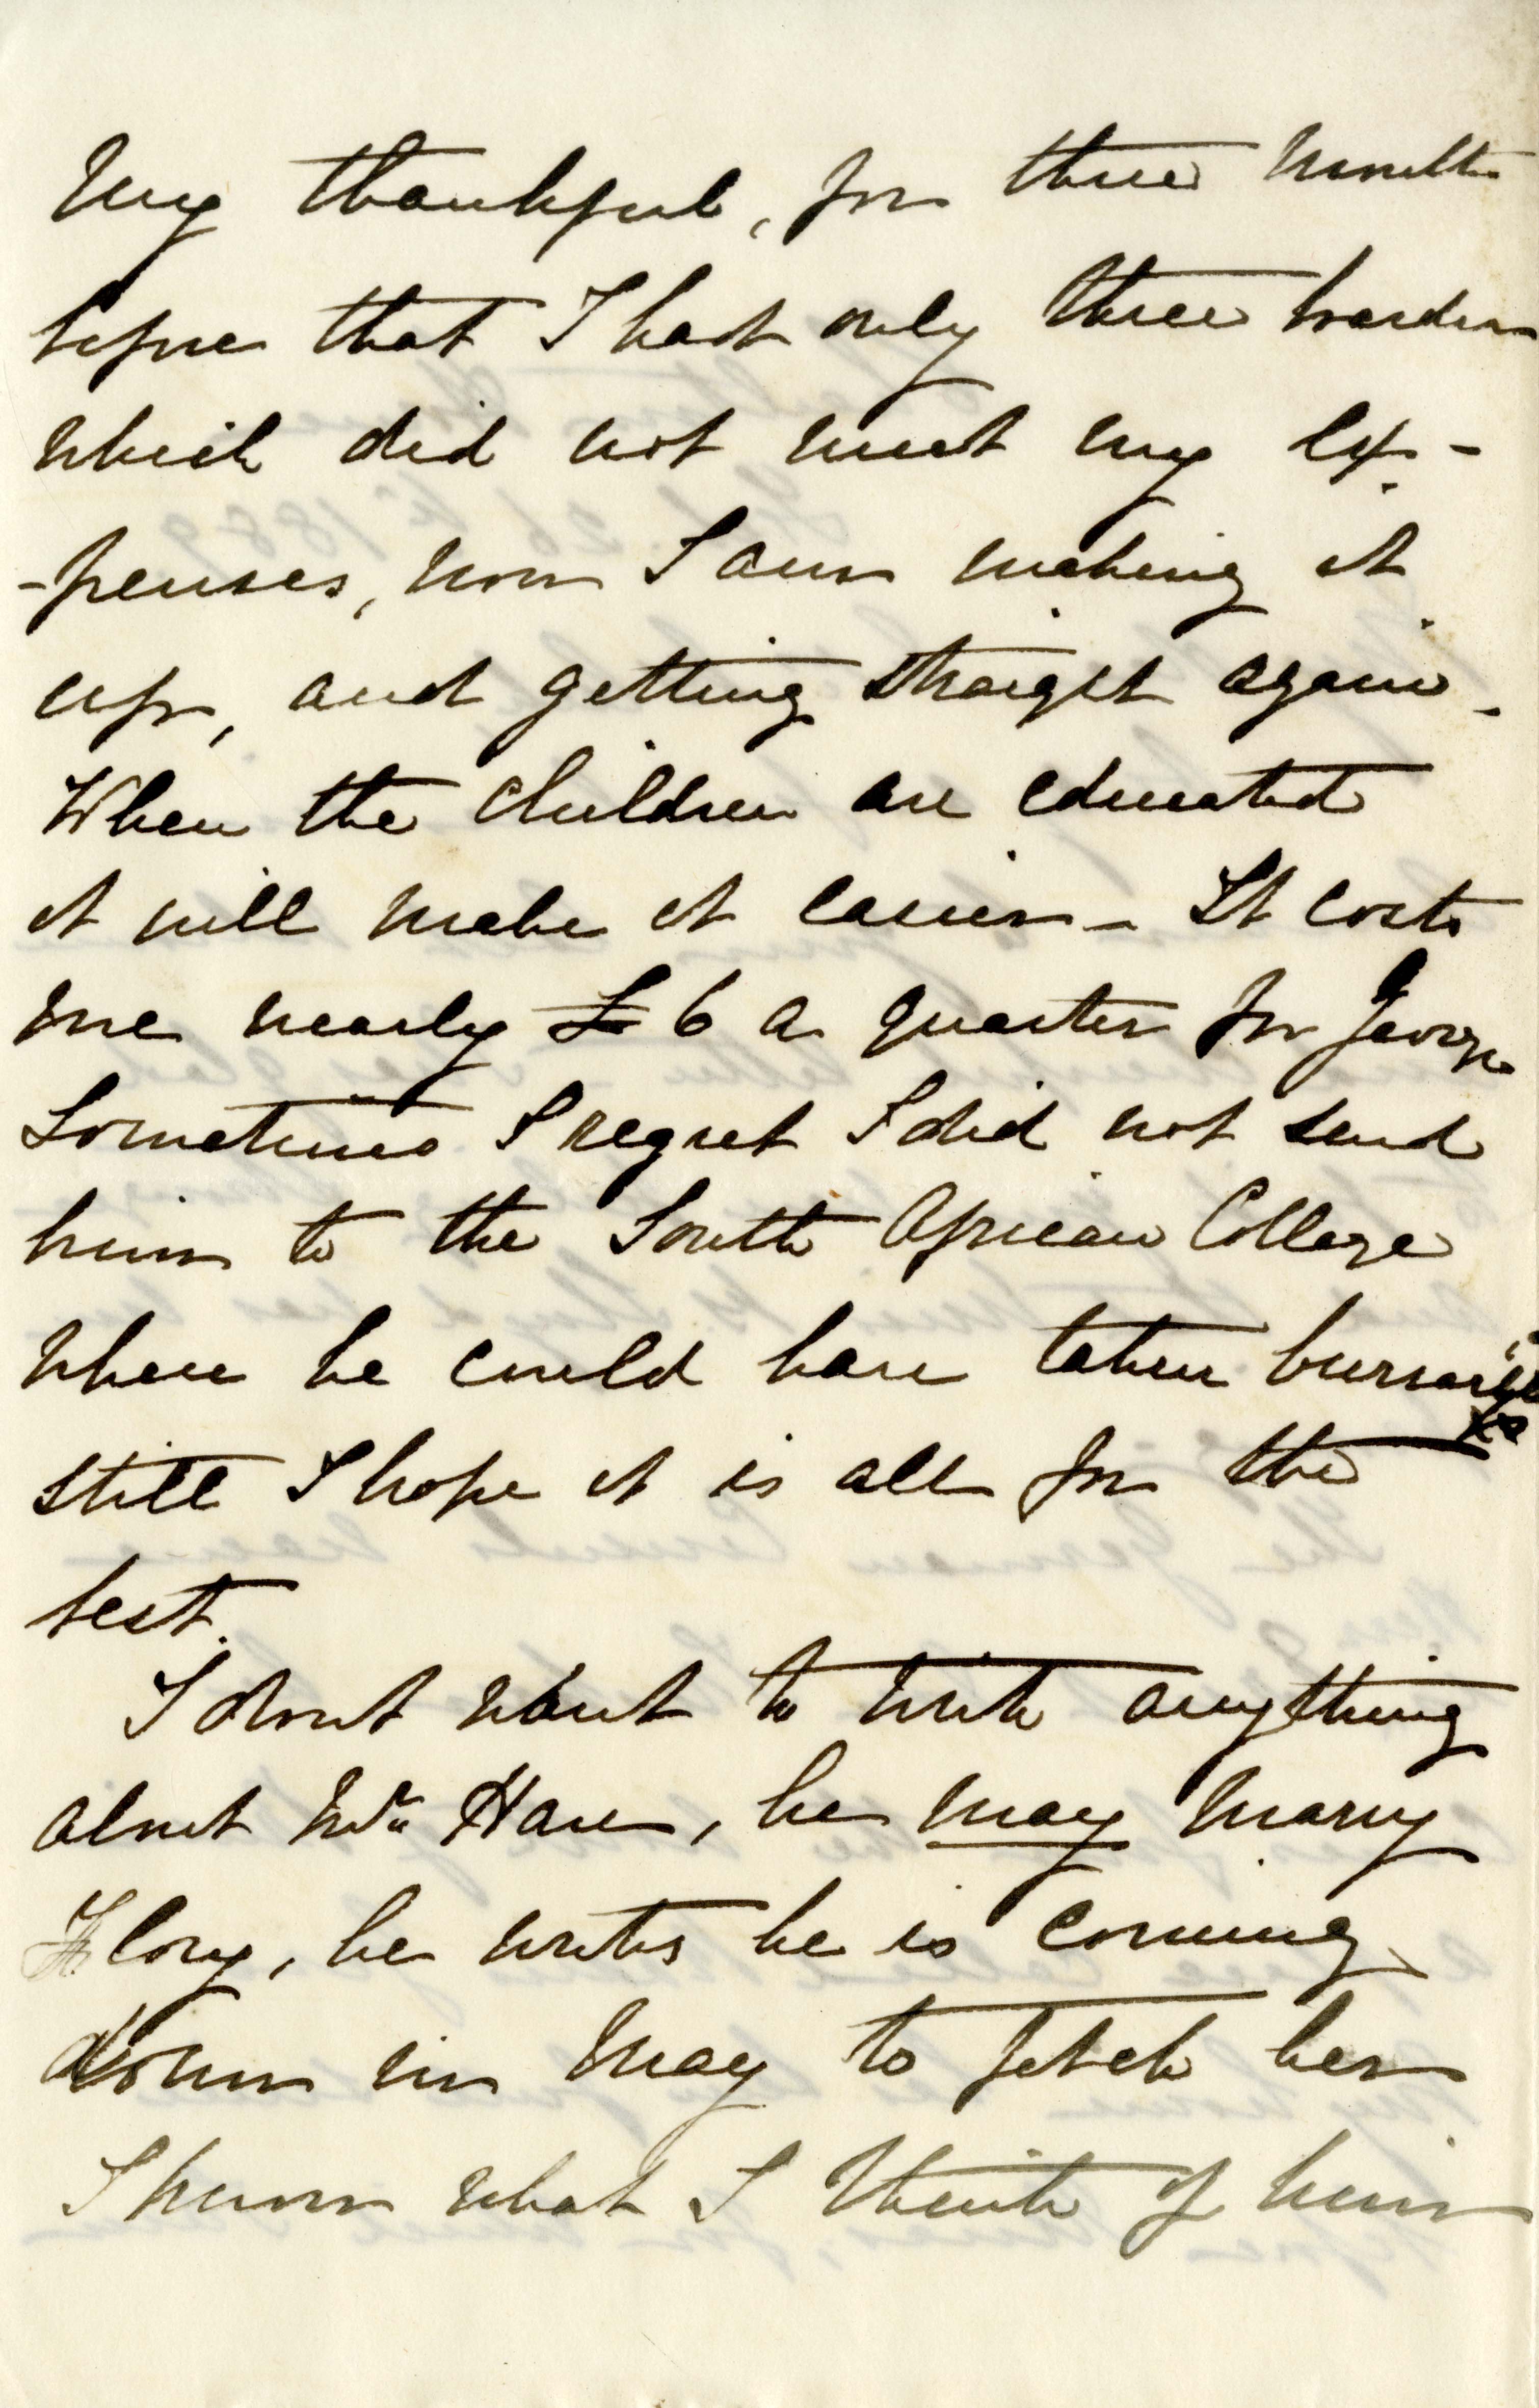 very thankful, for three months
before that I had only three boarders
which did not meet my ex-
-penses, now I am making it
up, and getting straight again.
When the children are educated
it will make it easier - It costs
me nearly £6 a quarter for George
Sometimes I regret I did not send
him to the South African College
where he could have taken bursaries
still I hope it is all for the
best.
I dont want to write anything
about Mr Hare, he may marry
Flory, he writes he is coming
down in May to fetch her
I know what I think of him